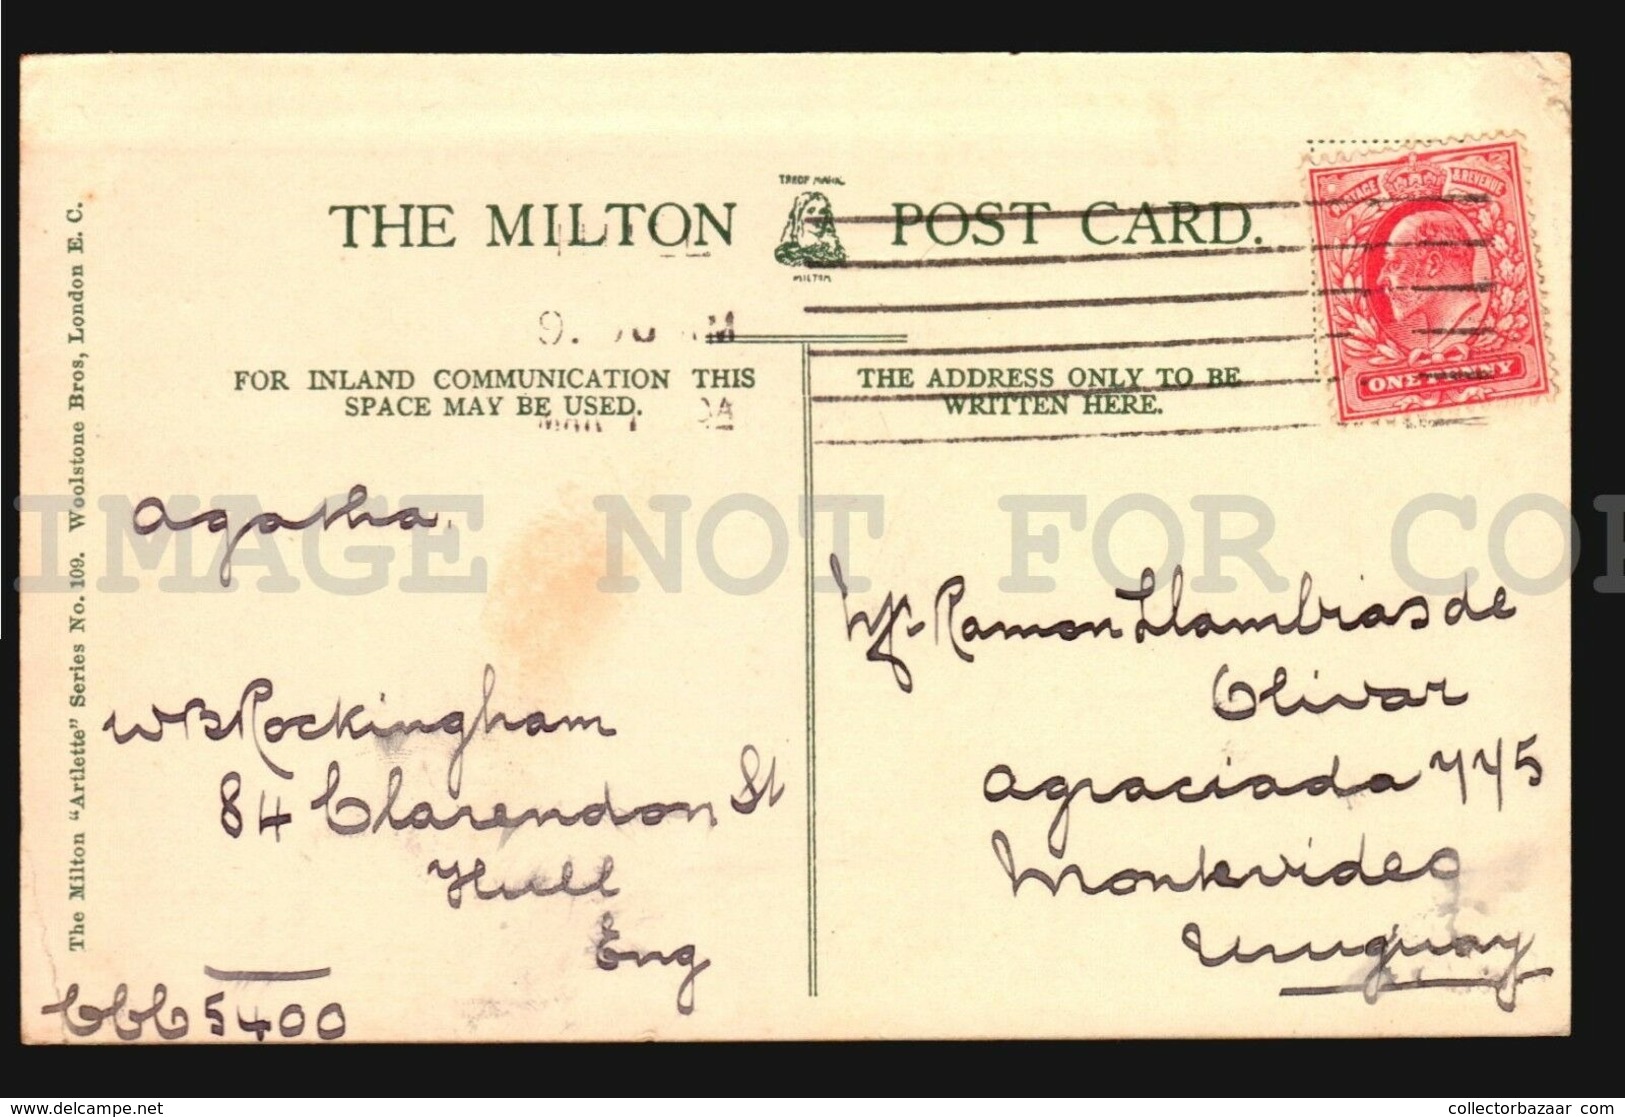 TRADE MARK
THE MILTON POST CARD.
MILTON
9. AM
FOR INLAND COMMUNICATION THIS
SPACE MAY BE USED.
MAR
THE ADDRESS ONLY TO BE
WRITTEN HERE.
POSTAGE & REVENUE
ONE PENNY
The Milton "Artlette" Series No. 109. Woolstone Bros, London E. C.
IMAGE NOT FOR COP
Agatha.
W B Rockingham
84 Clarendon St
Hull
Eng
CCC 5400
Mr Ramon Llambias de
Olivar
Agraciada 775
Montevideo
Uruguay
www.delcampe.net
collectorbazaar_com